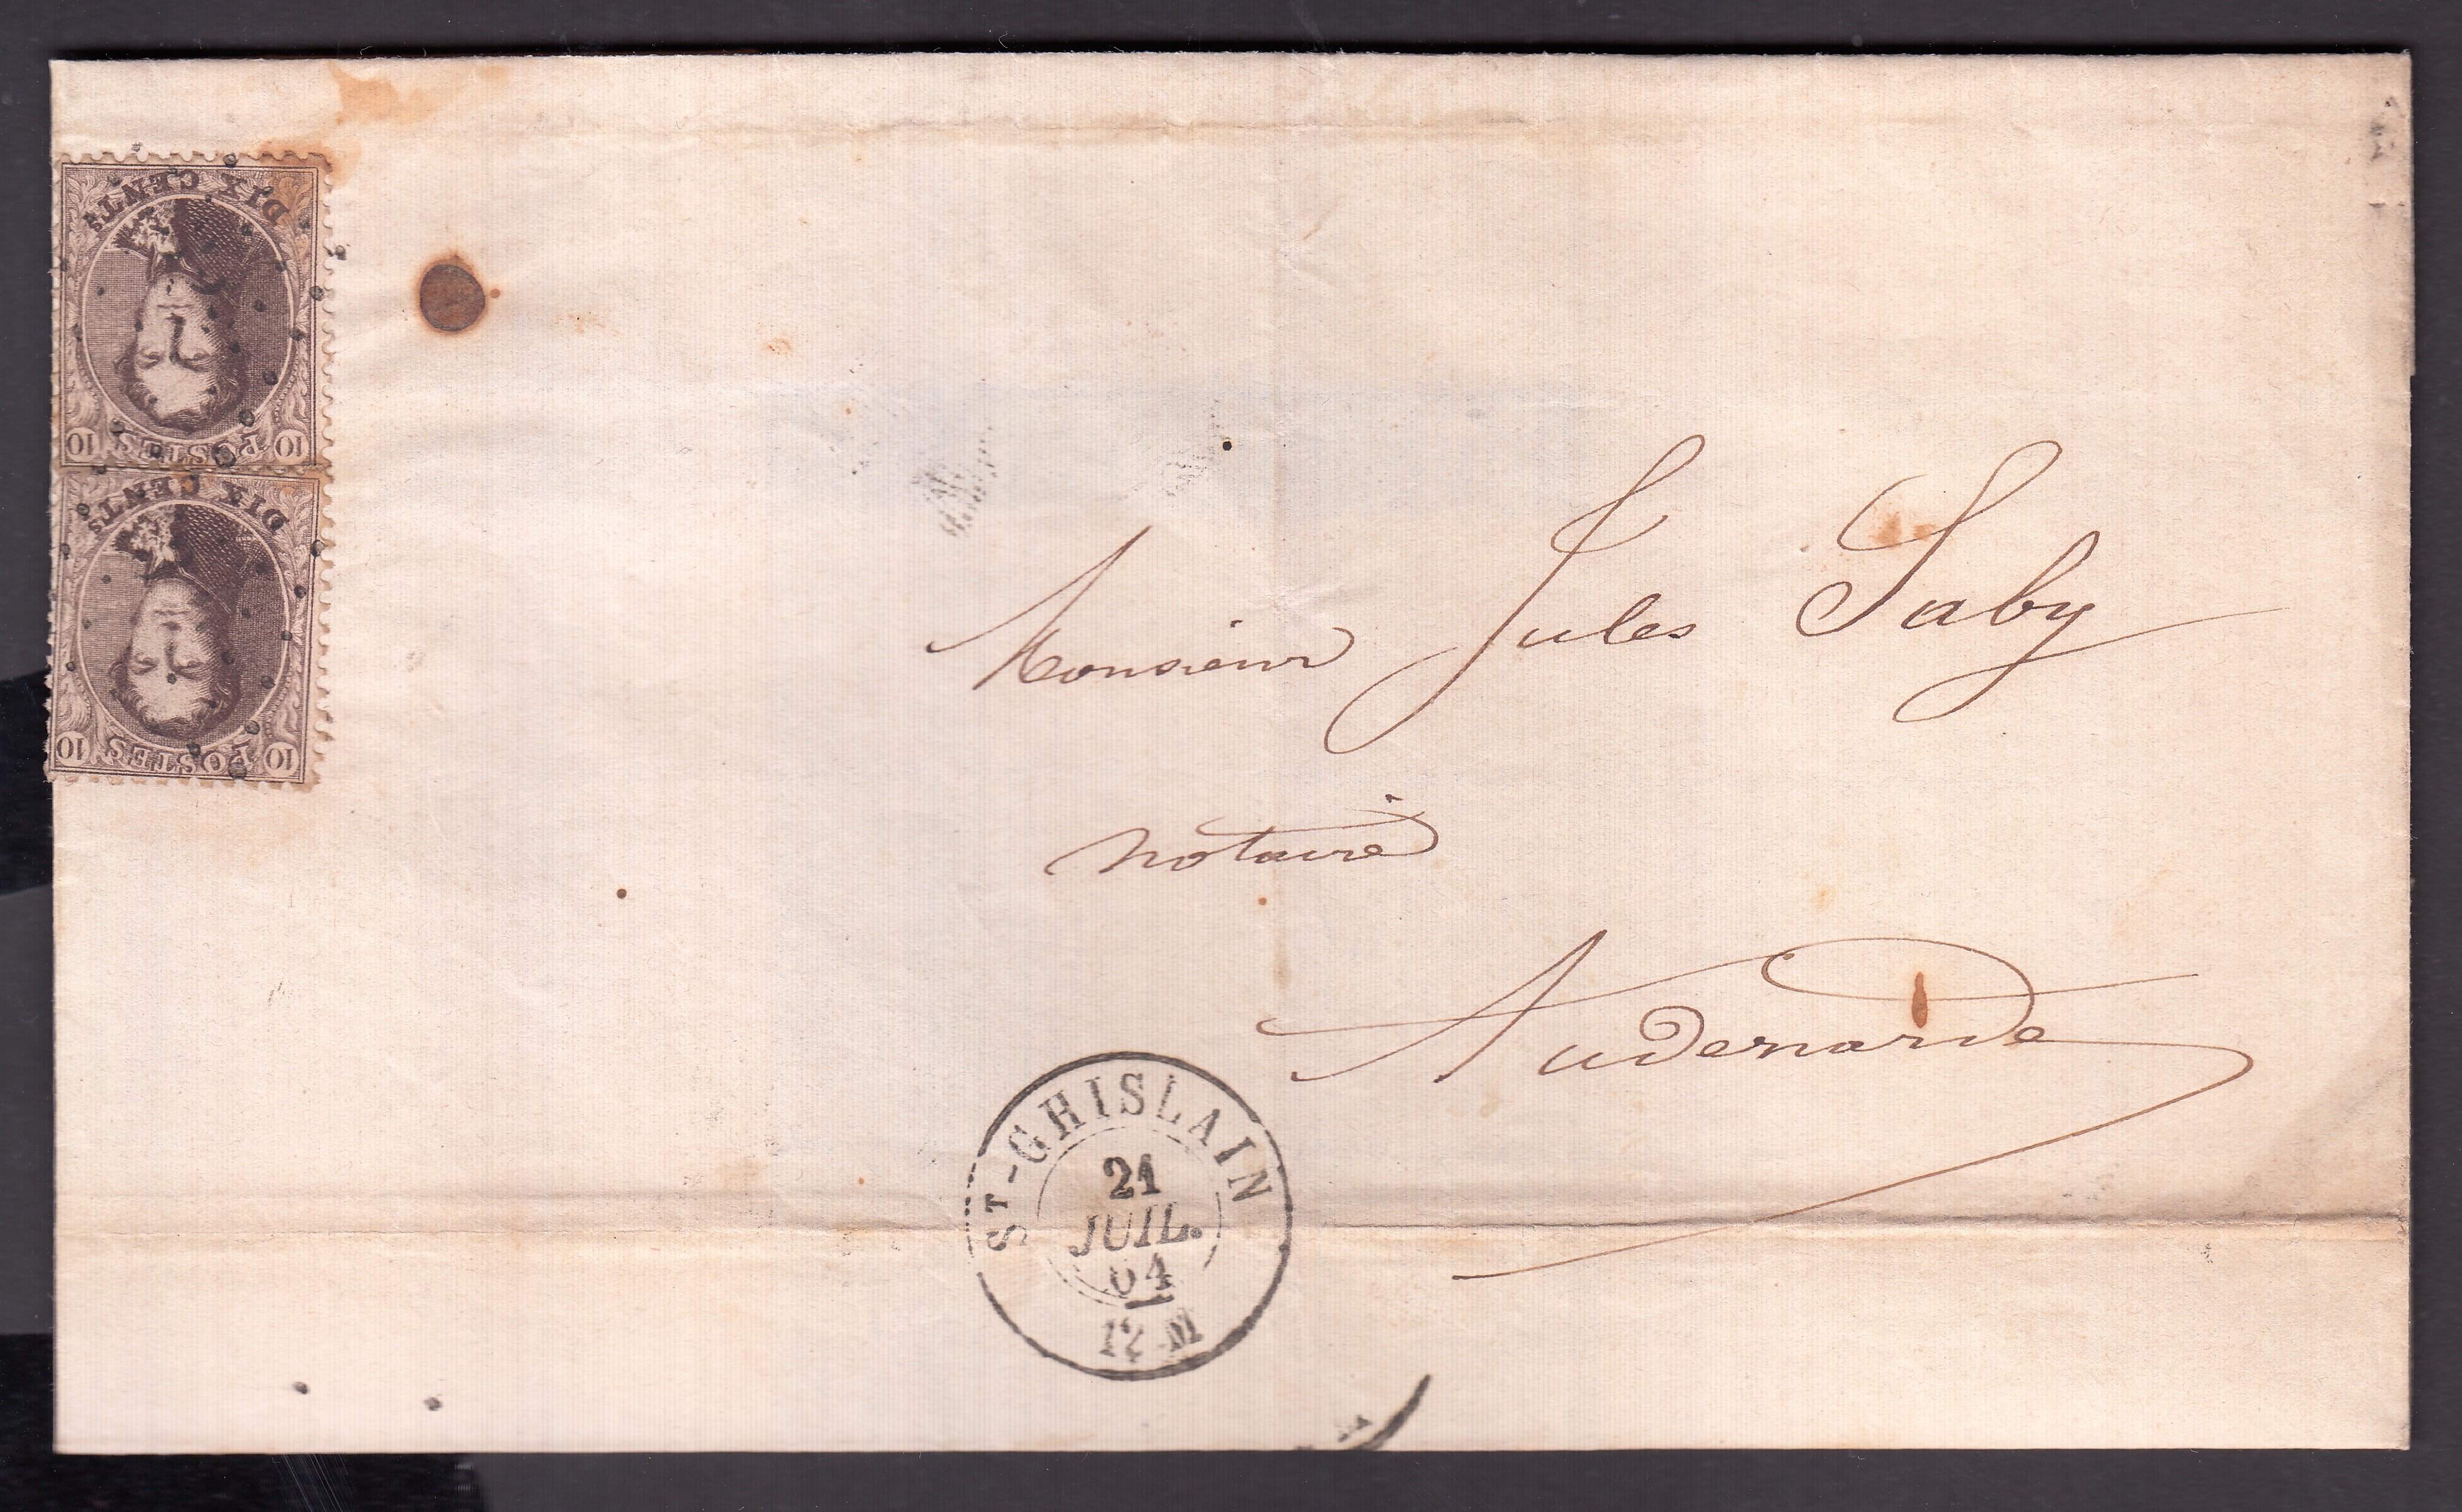 DIX CENTS
POSTES
10 10
DIX CENTS
POSTES
10 10
Monsieur Jules Saby
notaire
Audenarde
ST-GHISLAIN
21
JUIL.
64
12 M